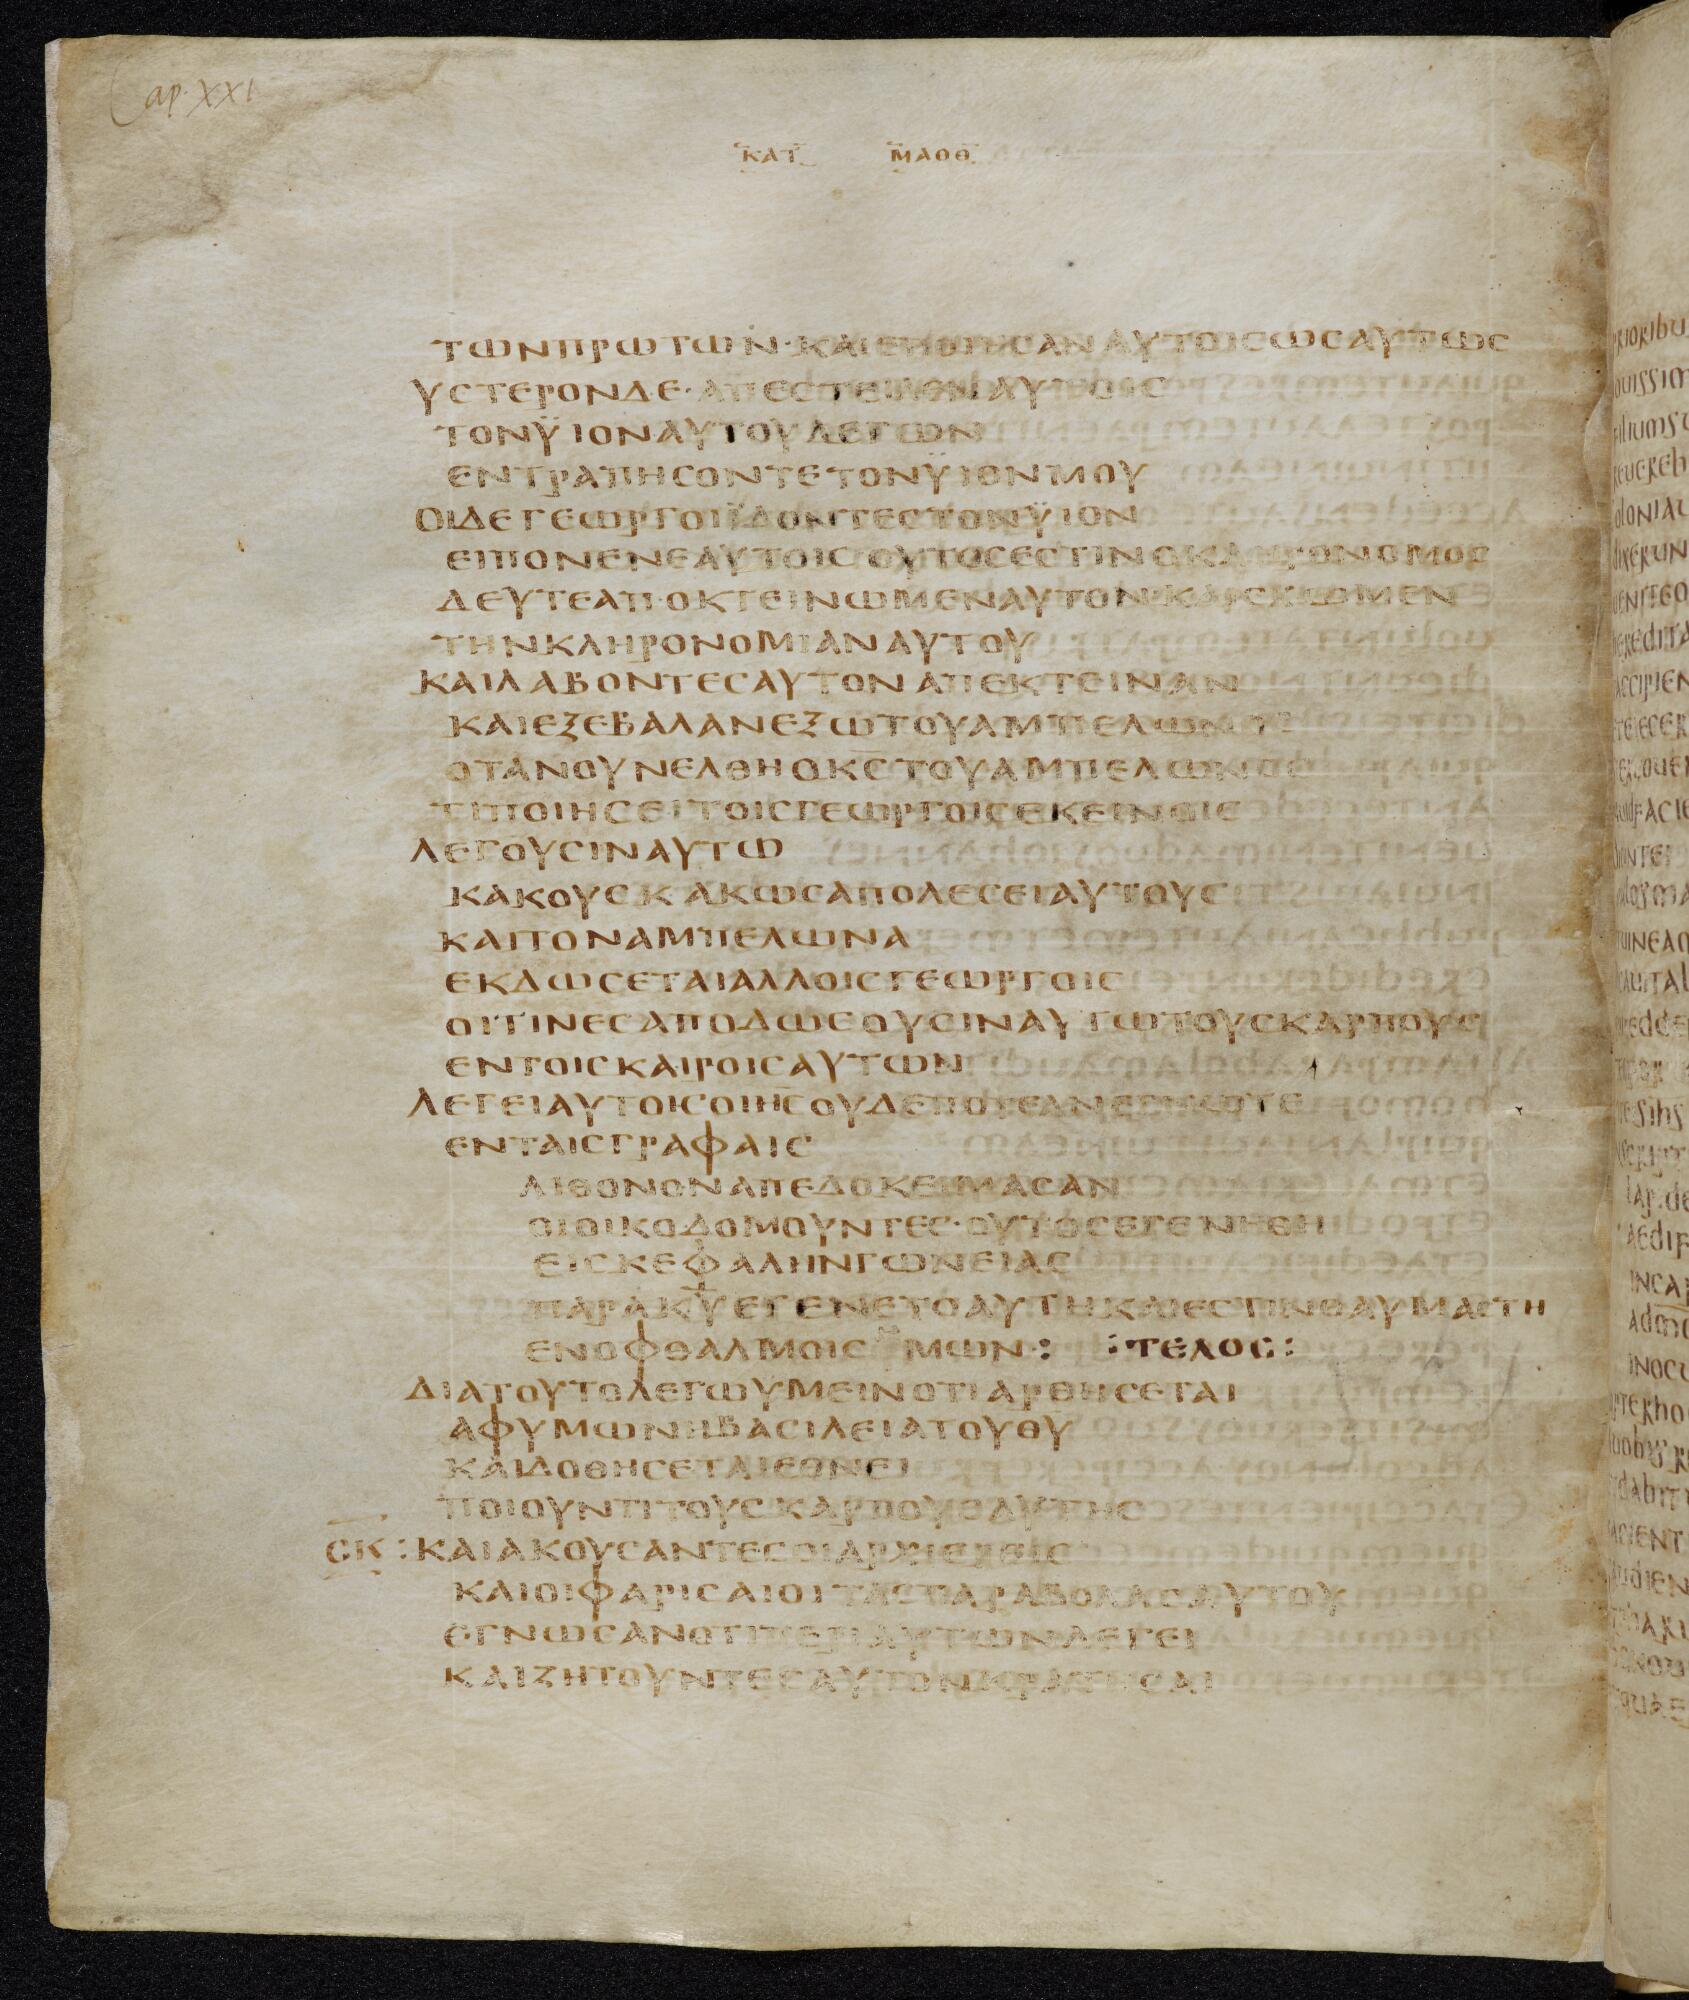 Cap. XXI
ΚΑΤ ΜΑΘΘ
ΤΩΝΠΡΩΤΩΝ·ΚΑΙΕΠΟΙΗСΑΝΑΥΤΟΙСΩСΑΥΤΩС
ΥСΤΕΡΟΝΔΕ·ΑΠΕСΤΕΙΛΕΝΑΥΤΟΙС
ΤΟΝΫΙΟΝΑΥΤΟΥΛΕΓΩΝ
ΕΝΤΡΑΠΗСΟΝΤΕΤΟΝΫΙΟΝΜΟΥ
ΟΙΔΕΓΕΩΡΓΟΙΪΔΟΝΤΕСΤΟΝΫΙΟΝ
ΕΙΠΟΝΕΝΕΑΥΤΟΙСΟΥΤΟСΕСΤΙΝΟΚΛΗΡΟΝΟΜΟС
ΔΕΥΤΕΑΠΟΚΤΕΙΝΩΜΕΝΑΥΤΟΝΚΑΙСΧΩΜΕΝ
ΤΗΝΚΛΗΡΟΝΟΜΙΑΝΑΥΤΟΥ
ΚΑΙΛΑΒΟΝΤΕСΑΥΤΟΝΑΠΕΚΤΕΙΝΑΝ
ΚΑΙΕΞΕΒΑΛΑΝΕΞΩΤΟΥΑΜΠΕΛΩΝΟС
ΟΤΑΝΟΥΝΕΛΘΗΟΚ̅С̅ΤΟΥΑΜΠΕΛΩΝΟС
ΤΙΠΟΙΗСΕΙΤΟΙСΓΕΩΡΓΟΙСΕΚΕΙΝΟΙС
ΛΕΓΟΥСΙΝΑΥΤΩ
ΚΑΚΟΥСΚΑΚΩСΑΠΟΛΕСΕΙΑΥΤΟΥС
ΚΑΙΤΟΝΑΜΠΕΛΩΝΑ
ΕΚΔΩСΕΤΑΙΑΛΛΟΙСΓΕΩΡΓΟΙС
ΟΙΤΙΝΕСΑΠΟΔΩСΟΥСΙΝΑΥΤΩΤΟΥСΚΑΡΠΟΥС
ΕΝΤΟΙСΚΑΙΡΟΙСΑΥΤΩΝ
ΛΕΓΕΙΑΥΤΟΙСΟΙ̅Η̅С̅ΟΥΔΕΠΟΤΕΑΝΕΓΝΩΤΕ
ΕΝΤΑΙСΓΡΑΦΑΙС
ΛΙΘΟΝΟΝΑΠΕΔΟΚΕΙΜΑСΑΝ
ΟΙΟΙΚΟΔΟΜΟΥΝΤΕС·ΟΥΤΟСΕΓΕΝΗΘΗ
ΕΙСΚΕΦΑΛΗΝΓΩΝΕΙΑС
ΠΑΡΑΚ̅Υ̅ΕΓΕΝΕΤΟΑΥΤΗΚΑΙΕСΤΙΝΘΑΥΜΑСΤΗ
ΕΝΟΦΘΑΛΜΟΙСΗΜΩΝ: :ΤΕΛΟС:
ΔΙΑΤΟΥΤΟΛΕΓΩΥΜΕΙΝΟΤΙΑΡΘΗСΕΤΑΙ
ΑΦΥΜΩΝΗΒΑСΙΛΕΙΑΤΟΥΘ̅Υ̅
ΚΑΙΔΟΘΗСΕΤΑΙΕΘΝΕΙ
ΠΟΙΟΥΝΤΙΤΟΥСΚΑΡΠΟΥСΑΥΤΗС
СΚ:ΚΑΙΑΚΟΥСΑΝΤΕСΟΙΑΡΧΙΕΡΕΙС
ΚΑΙΟΙΦΑΡΙСΑΙΟΙΤΑСΠΑΡΑΒΟΛΑСΑΥΤΟΥ
ΕΓΝΩСΑΝΟΤΙΠΕΡΙΑΥΤΩΝΛΕΓΕΙ
ΚΑΙΖΗΤΟΥΝΤΕСΑΥΤΟΝΚΡΑΤΗСΑΙ